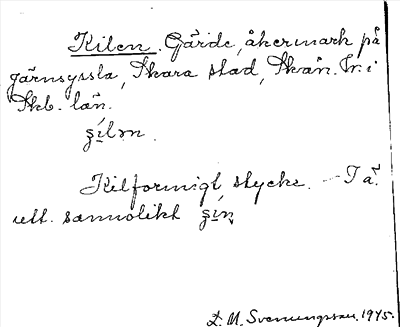 Kilen. Gärde, åkermark på
järnsyssla, Skara stad, Skån. hr. i
Skb. län.
şílən.
Kilformigt stycke. – Tä.
utt. sannolikt şín̥
D. M. Svenungsson. 1945.